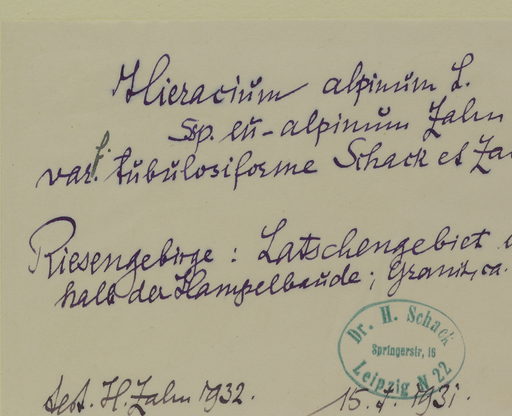 Hieracium alpinum L.
Ssp. eu-alpinum Zahn
var. f. tubulosiforme Schack et Za
Riesengebirge: Latschengebiet
halb der Hampelbaude; Granit, ca.
Dr. H. Schack
Springerstr. 16
Leipzig N 22
det. H. Zahn 1932.
15. 1931.